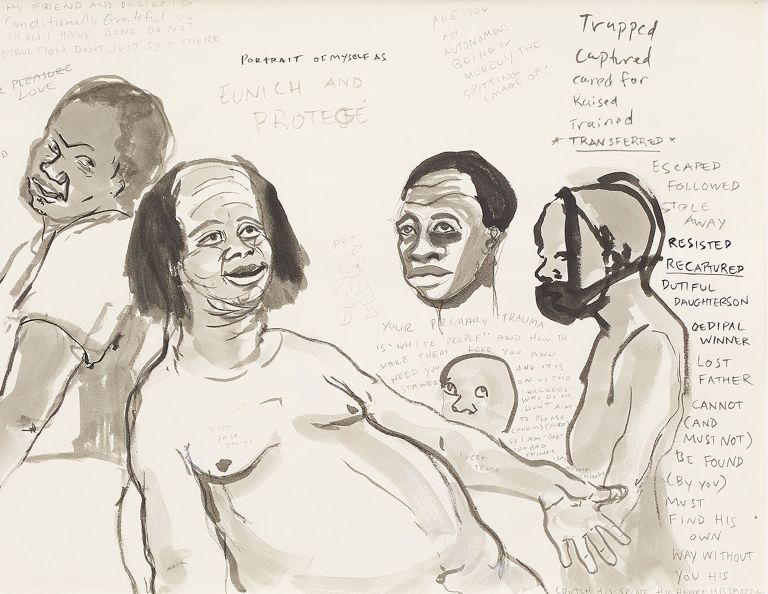 MY FRIEND AND DO LIKE I DO
Conditionally Grateful Do
THAN I HAVE DONE DO NOT
STRUCTION DONT JUST SIT THERE
PLEASURE
LOVE
PORTRAIT OF MYSELF AS
EUNICH AND
PROTEGÉ
ARE YOU
AN
AUTONOMOUS
BEING OR
MERELY THE
SPITTING
IMAGE OF?
Trapped
Captured
cared for
Raised
Trained
* TRANSFERRED *
ESCAPED
FOLLOWED
STOLE
AWAY
RESISTED
RECAPTURED
DUTIFUL
DAUGHTERSON
OEDIPAL
WINNER
LOST
FATHER
CANNOT
(AND
MUST NOT)
BE FOUND
(BY YOU)
MUST
FIND HIS
OWN
WAY WITHOUT
YOU HIS
CRUTCH HIS SPIRIT HIS HEART HIS
PET
YOUR PRIMARY TRAUMA
IS "WHITE PEOPLE" AND HOW TO
MAKE THEM LOVE YOU AND
NEED YOU
AND IT IS
ON US THE
WALKERS
WHO DO OR
DON'T AIM
TO PLEASE
SO I AM "BAD"
I DO BAD
THINGS